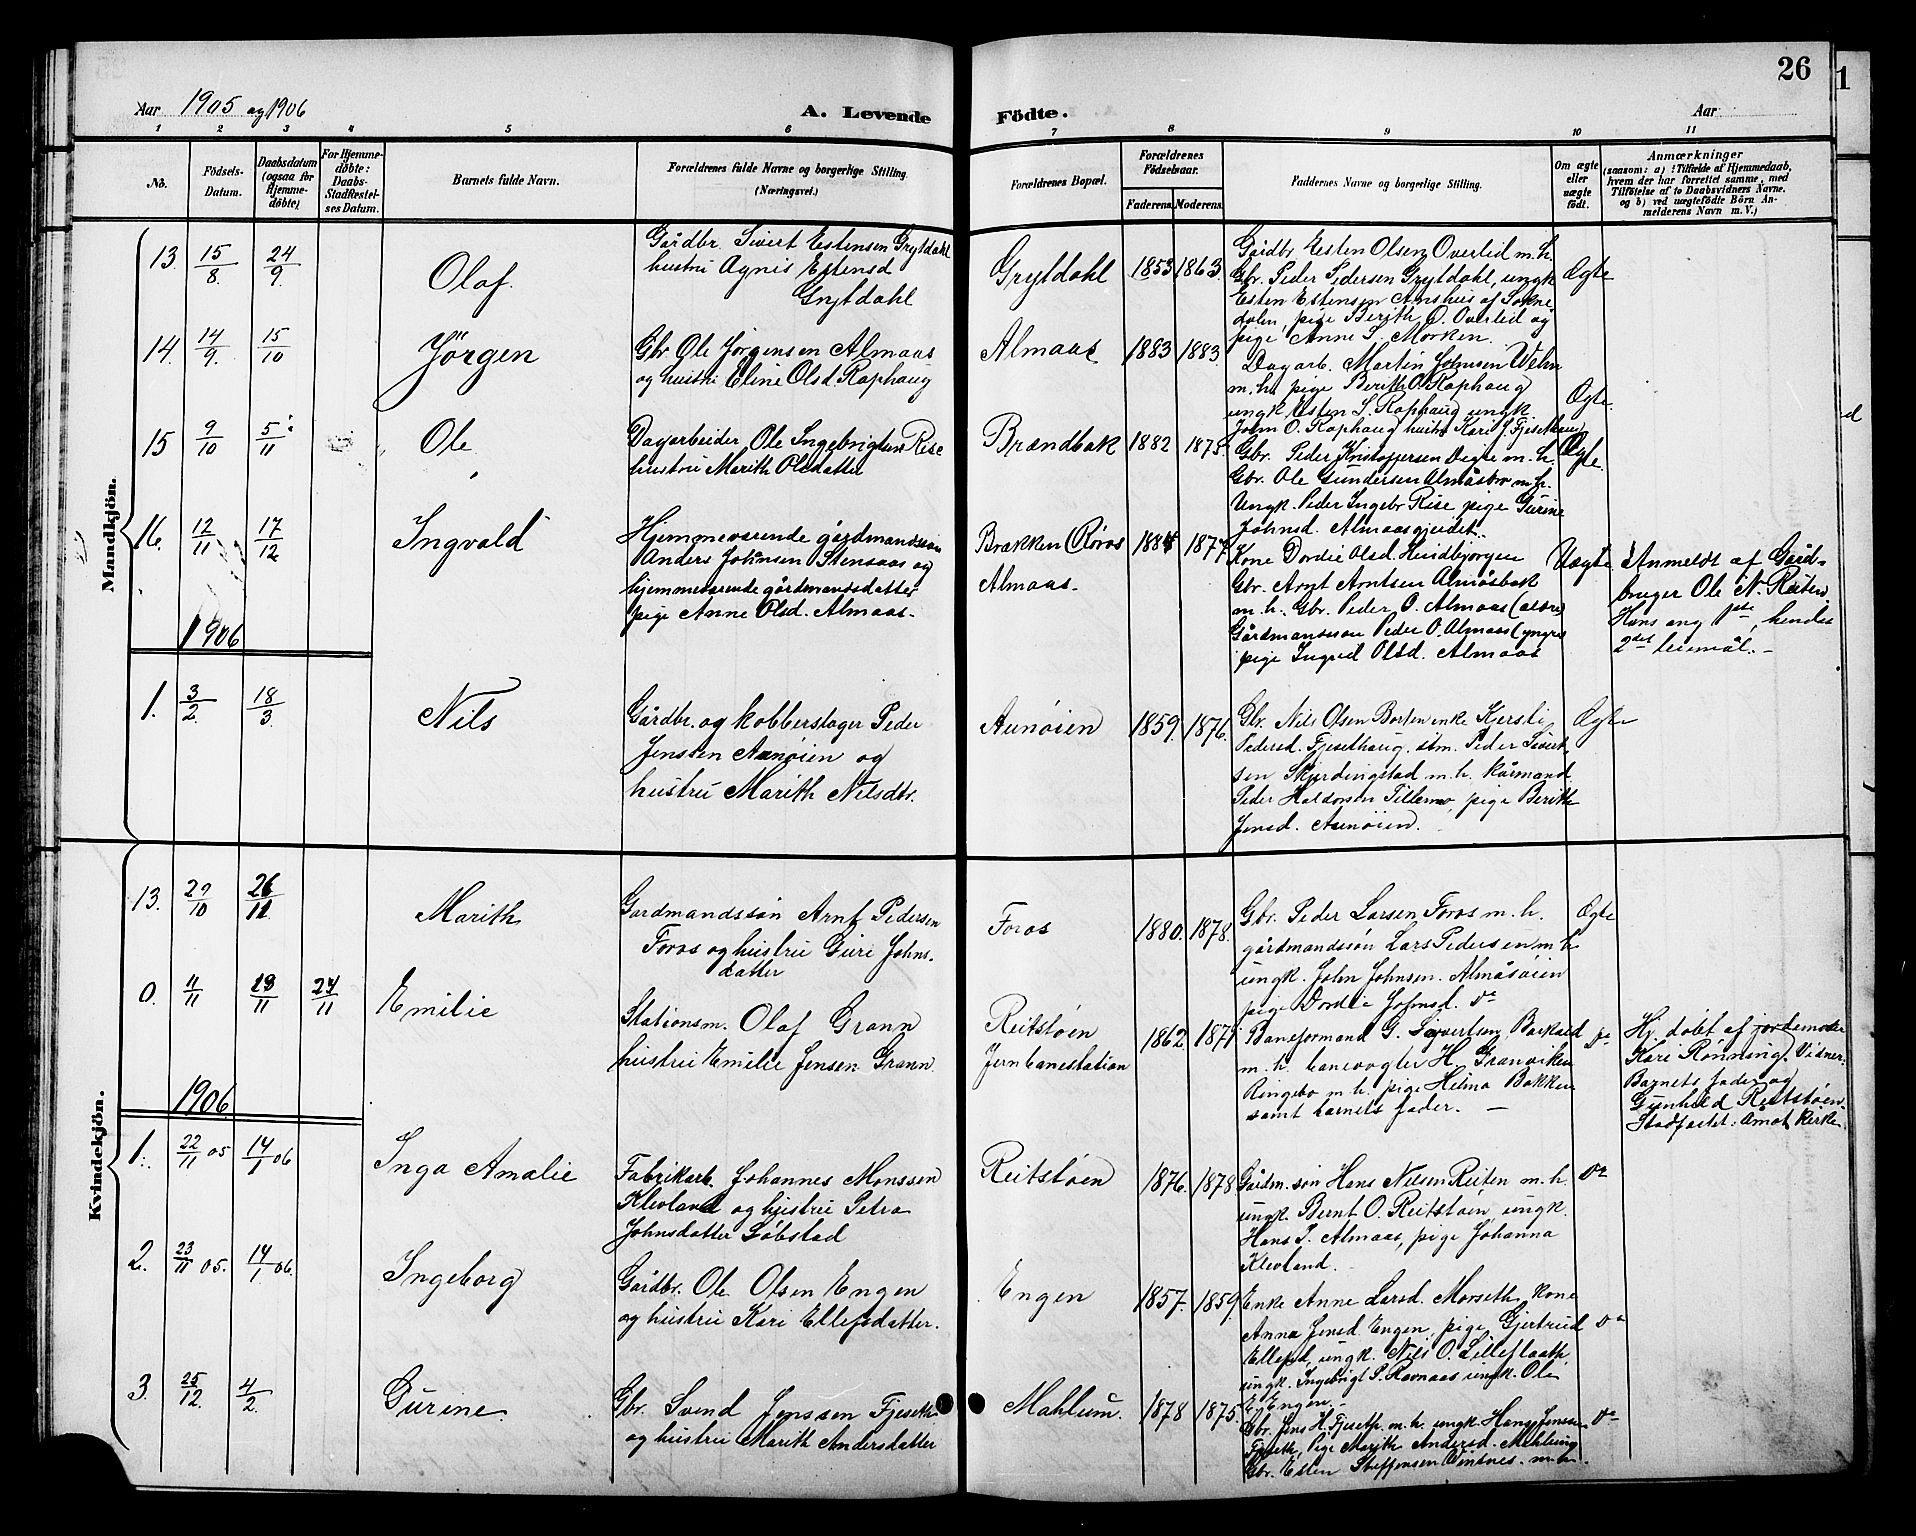 26
1
Aar 1905 og 1906
A. Levende
Födte.
Aar
1 2 3 4 5 6 7 8 9 10 11
No.
Födsels-
Datum.
Daabsdatum
(ogsaa for
Hjemme-
döbte)
For Hjemme-
döbte:
Daabs-
Stadfæstel-
ses Datum.
Barnets fulde Navn.
Forældrenes fulde Navne og borgerlige Stilling.
(Næringsvei.)
Forældrenes Bopæl.
Forældrenes
Födselsaar.
Faderens. Moderens.
Faddernes Navne og borgerlige Stilling.
Om ægte
eller
uægte
født.
Anmærkninger
(saasom: a) i Tilfælde af Hjemmedaab,
hvem der har forrettet samme, med
Tilföielse af to Daabsvidners Navne.
og b) ved uægtefödte Börn An-
melderens Navn m. V.)
Mandkjön.
13 15/8 24/9
Olaf.
Gårdbr. Sivert Estensen Grytdahl
hustru Agnis Estensd
Grytdahl
Grytdahl 1853 1863.
Gårdbr Esten Olsen Overlid m. h.
Gbr. Peder Pedersen Grytdahl, ungk
Esten Estensen Amshus af Sokne
dalen, pige Berith O. Overlid og
pige Anne S. Morken.
Ægte
14. 14/9. 15/10
Jörgen
Gbr Ole Jørgensen Almaas
og hustru Eline Olsd Raphaug
Almaas 1883 1883.
Dagarb. Martin Johnsen Volen
m. h. pige Berith O. Raphaug
ungk Esten S. Raphaug ungk.
John O. Raphaug hustru Kari J. Fjesethaug
Ægte.
15 9/10 5/11
Ole
Dagarbeider Ole Ingebrigtsen Rise
hustru Marith Olsdatter
Brændbak 1882 1875.
Gbr. Peder Kristoffersen Digre m. h.
Gbr. Ole Gundersen Almåsbro m. h.
Ungk. Peder Ingebr Rise pige Gurine
Johnsd. Almaasgjerdet.
Ægte.
16. 12/11 17/12
Ingvald
Hjemmeværende gårdmandssøn
Anders Johnsen Stensaas og
hjemmeværende gårdmandsdatter
pige Anne Olsd. Almaas.
Brækken (Røros
Almaas.
1884 1877.
Kone Dordie Olsd. Hindbjørgen
Gbr. Arnt Arntsen Almåsbak
m. h. Gbr. Peder O. Almaas (ældre)
Gårdmandssøn Peder O. Almaas (yngre)
pige Ingrid Olsd. Almaas
Uægte
Anmeldt af Gård-
bruger Ole N. Reiten.
Hans ang 1ste, hendes
2det leiermål.
1906
1. 3/2. 18/3.
Nils
Gårdbr. og kobberslager Peder
Jenssen Aunøien og
hustru Marith Nilsdtr.
Aunøien 1859. 1876.
Gbr. Nils Olsen Borten enke Kjersti
Pedersd. Fjesethaug. stm. Peder Sivert-
sen Skjerdingstad m. h. kårmand
Peder Haldorsen Tillermo, pige Berith
Jensd. Aunøien.
Ægte
Kvindekjön.
13. 29/10 26/11
Marith
Gardmandssøn Arnt Pedersen
Foros og hustru Guri Johns-
datter
Foros 1880. 1878.
Gbr. Peder Larsen Foros m. h.
gårdmandssøn Lars Pedersen m. h
ungk. John Johnsen. Almåsøien
pige Dordie Johnsd. do
Ægte
0. 11/11 19/11 24/11
Emilie
Stationsm. Olaf Grann
hustru Emilie Jensen Grann.
Reitstøen
Jernbanestation
1862. 1871.
Baneformand G. Sivertsen Barkald
m. h. banevogter H. Granviken
Ringebo m. h. pige Helma Bakken
samt barnets fader.
do
Hj. døbt af jordemoder
Kari Rønning. Vidner:
Barnets fader og
Gunhild Reitstøen.
Stadfæstet: Åmot Kirke.
1906
1. 22/11 05 14/1 06
Inga Amalie
Fabrikarb. Johannes Monssen
Klevland og hustru Petra
Johnsdatter Løbstad
Reitstøen 1876. 1878
Gårdm. søn Hans Nilsen Reiten m. h.
ungk. Bernt O. Reitstøen, ungk.
Hans P. Almaas, pige Johanna
Klevland.
do
2. 23/11 05. 14/1 06.
Ingeborg
Gårdbr. Ole Olsen Engen
og hustru Kari Ellefsdatter.
Engen 1857. 1859.
Enke Anne Larsd. Morseth, kone
Anna Jensd. Engen, pige Gjertrud
Ellefsd, ungk. Nils O. Lilleflaath,
ungk. Ingebrigt P. Ravnaas ungk. Ole
E. Engen.
do
3. 25/12. 4/2.
Gurine.
Gbr. Svend Jenssen Fjeseth
og hustru Marith Andersdatter
Mahlum. 1878 1875.
Gbr. Jens H. Fjeseth m. h. ungk. Hans Jenssen
Fjeseth, Pige Marith Andersd. Mahlum
Gbr. Esten Steffensen Vinsnes. m. h.
do